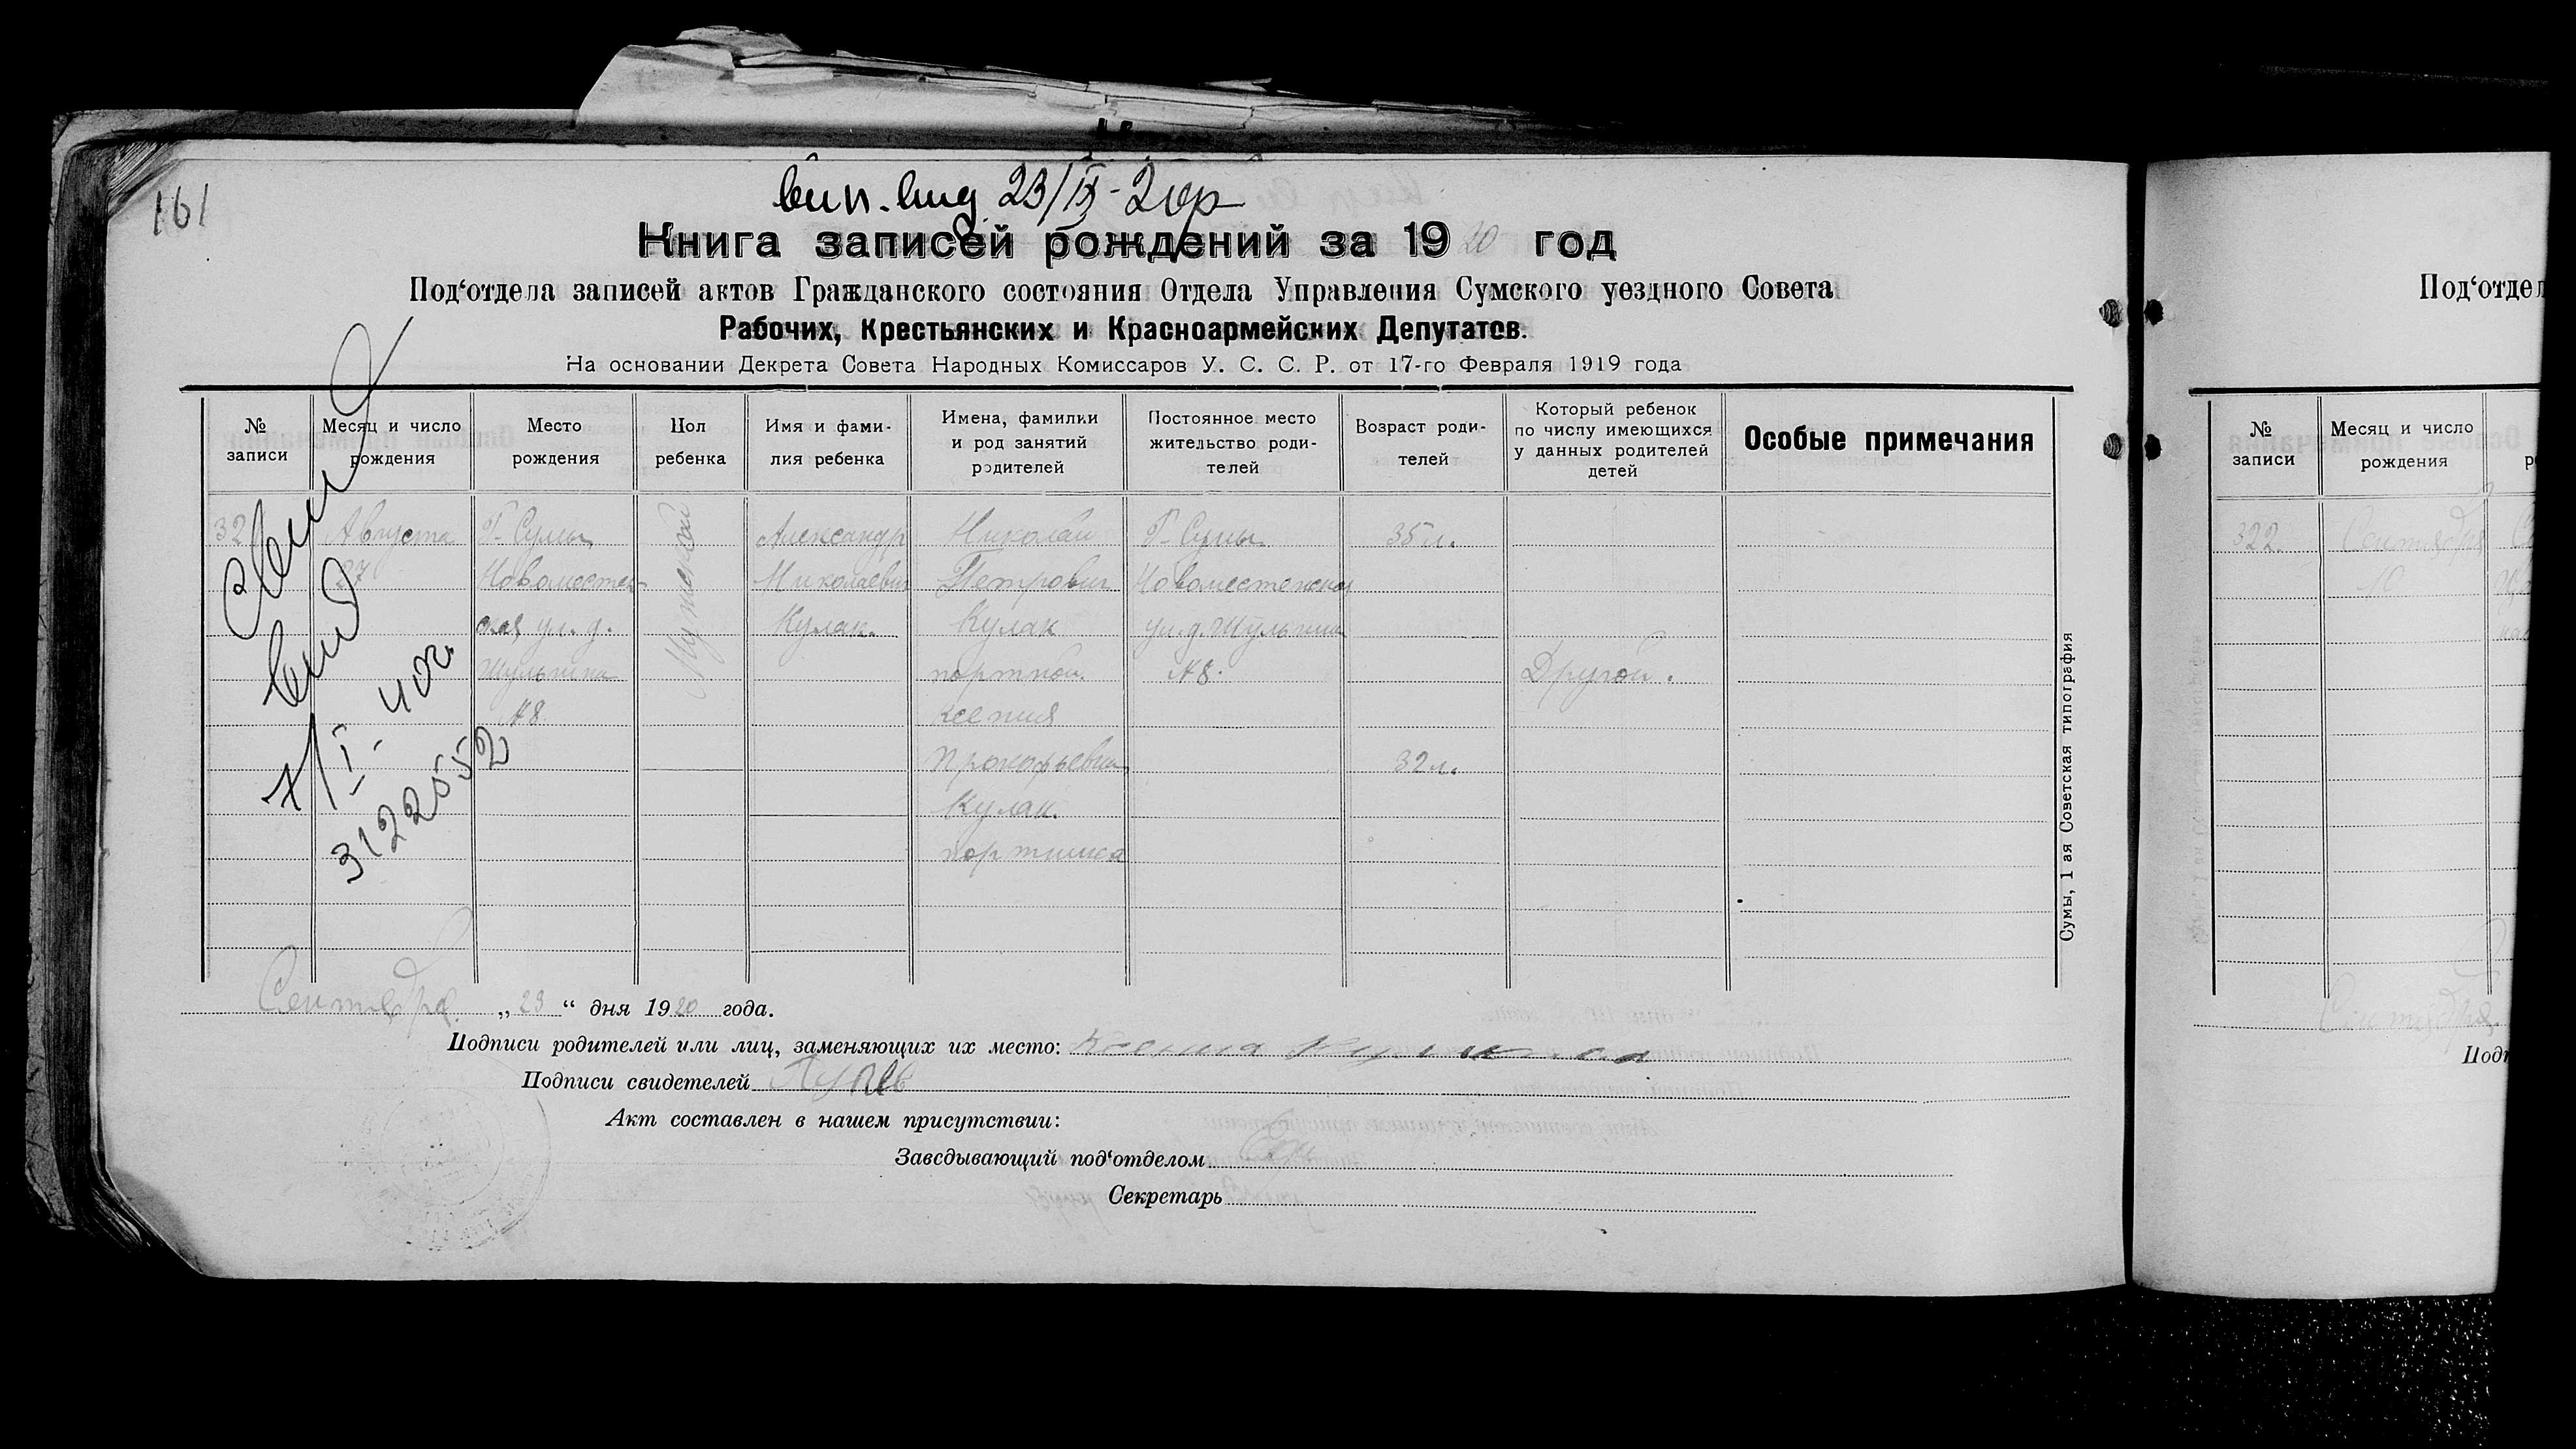 161
вип. вид. 23/IX-20р
Книга записей рождений за 1920 год
Под‘отдела записей актов Гражданского состояния Отдела Управления Сумского уездного Совета
Рабочих, Крестьянских и Красноармейских Депутатов.
На основании Декрета Совета Народных Комиссаров У. С. С. Р. от 17-го Февраля 1919 года
№ записи
Месяц и число рождения
Место рождения
Пол ребенка
Имя и фами-
лия ребенка
Имена, фамилии
и род занятий
родителей
Постоянное место
жительство роди-
телей
Возраст роди-
телей
Который ребенок
по числу имеющихся
у данных родителей
детей
Особые примечания
32
Августа
27
Г. Сумы
Новоместен-
ская ул. д.
Шульгина
№8.
Мужской
Александр
Николаевич
Кулак.
Николай
Петрович
Кулак
портной.
Ксения
Прокофьевна
Кулак.
портниха
Г. Сумы
Новоместенская
ул. д. Шульгина
№8.
35 л.
32 л.
Другой.
вид
7/I-40г.
3122552
Сентября „23“ дня 1920 года.
Подписи родителей или лиц, заменяющих их место: Ксения
Подписи свидетелей
Акт составлен в нашем присутствии:
Заведывающий под‘отделом
Секретарь
Сумы, 1 ая Советская типография
Под‘отдел
№ записи
Месяц и число
рождения
322
Сентября
10
Сентября
Подп